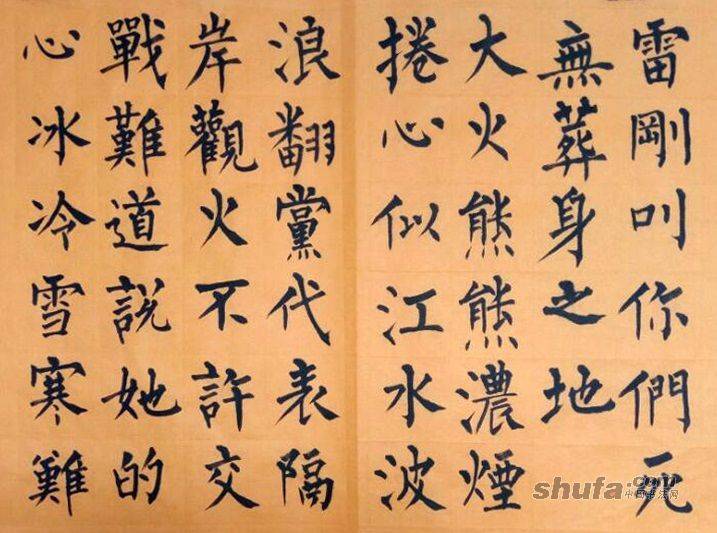 雷剛叫你們死
無葬身之地
大火熊熊濃煙
捲心似江水波
浪翻黨代表隔
岸觀火不許交
戰難道說她的
心冰冷雪寒難
shufa.com
中国书法网